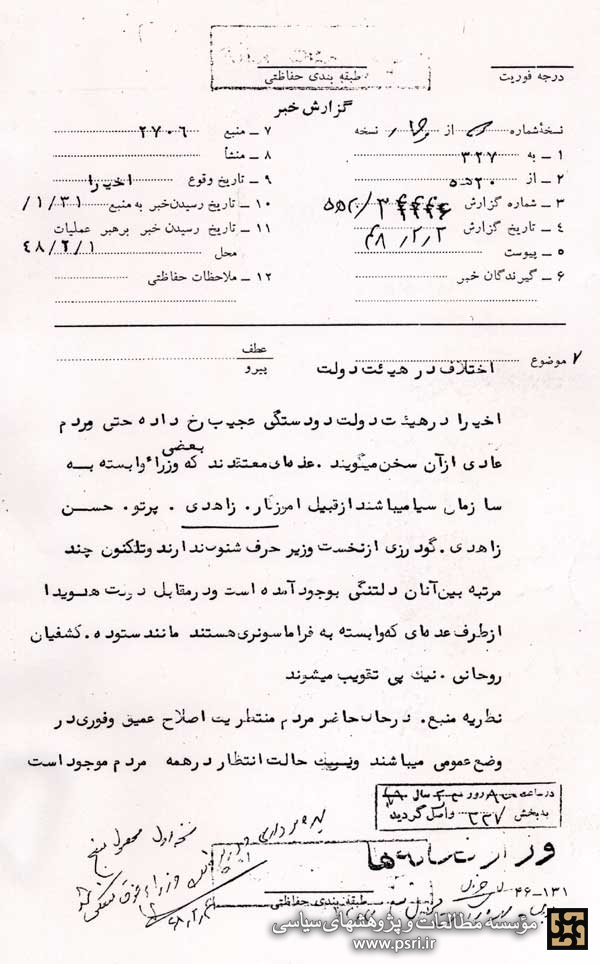 درجه فوریت
طبقه بندی حفاظتی
گزارش خبر
نسخهٔ شماره از نسخه
۱ ـ به ۳۲۷
۲ ـ از ۲۰ﻫ۵
۳ ـ شماره گزارش
۴ ـ تاریخ گزارش ۴۸/۲/۲
۵ ـ پیوست
۶ ـ گیرندگان خبر
۷ ـ منبع ۲۷۰۶
۸ ـ منشأ
۹ ـ تاریخ وقوع اخیرا
۱۰ ـ تاریخ رسیدن خبر به منبع ۱/۳۱/
۱۱ ـ تاریخ رسیدن خبر برهبر عملیات
محل ۴۸/۲/۱
۱۲ ـ ملاحظات حفاظتی
۷ موضوع اختلاف در هیئت دولت
عطف
پیرو
اخیرا در هیئت دولت دودستگی عجیب رخ داده حتی مردم
عادی ازآن سخن میگویند . عده‌ای معتقدند که بعضی وزراء وابسته به
سازمان سیا میباشند ازقبیل اموزگار . زاهدی . پرتو . حسن
زاهدی . گودرزی ازنخست وزیر حرف شنوندارند وتاکنون چند
مرتبه بین آنان دلتنگی بوجود آمده است ودرمقابل دولت هویدا
ازطرف عده‌ای که وابسته به فراماسونری هستند مانند ستوده . کشفیان
روحانی . نیک پی تقویب میشوند
نظریه منبع . درحال حاضر مردم منتظر یک اصلاح عمیق وفوری در
وضع عمومی میباشند ویک حالت انتظار درهمه مردم موجود است
در ساعت روز سال
به بخش ۳۳۷ واصل گردید
نسخه اول
۴۶-۱۳۱
طبقه بندی حفاظتی
مؤسسه مطالعات و پژوهشهای سیاسی
www.psri.ir